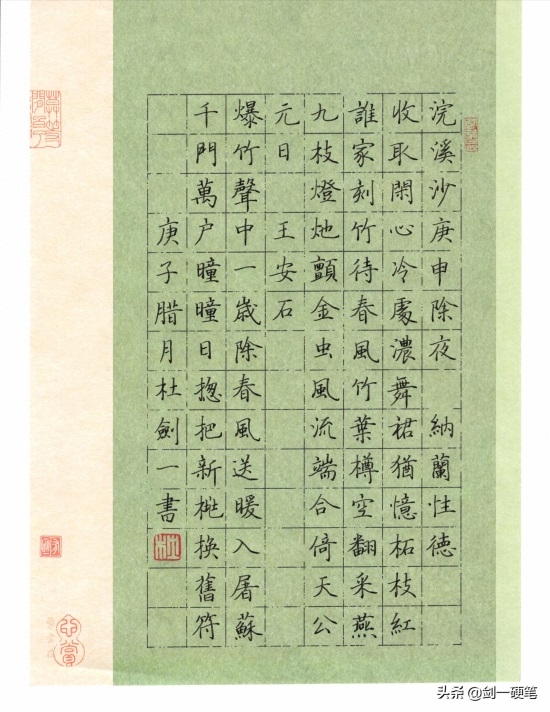 浣溪沙庚申除夜 納蘭性德
收取閑心冷處濃舞裙猶憶柘枝紅
誰家刻竹待春風竹葉樽空翻采燕
九枝燈灺顫金虫風流端合倚天公
元日 王安石
爆竹聲中一歲除春風送暖入屠蘇
千門萬户曈曈日揔把新桃換舊符
庚子腊月杜劍一書
头条 @剑一硬笔